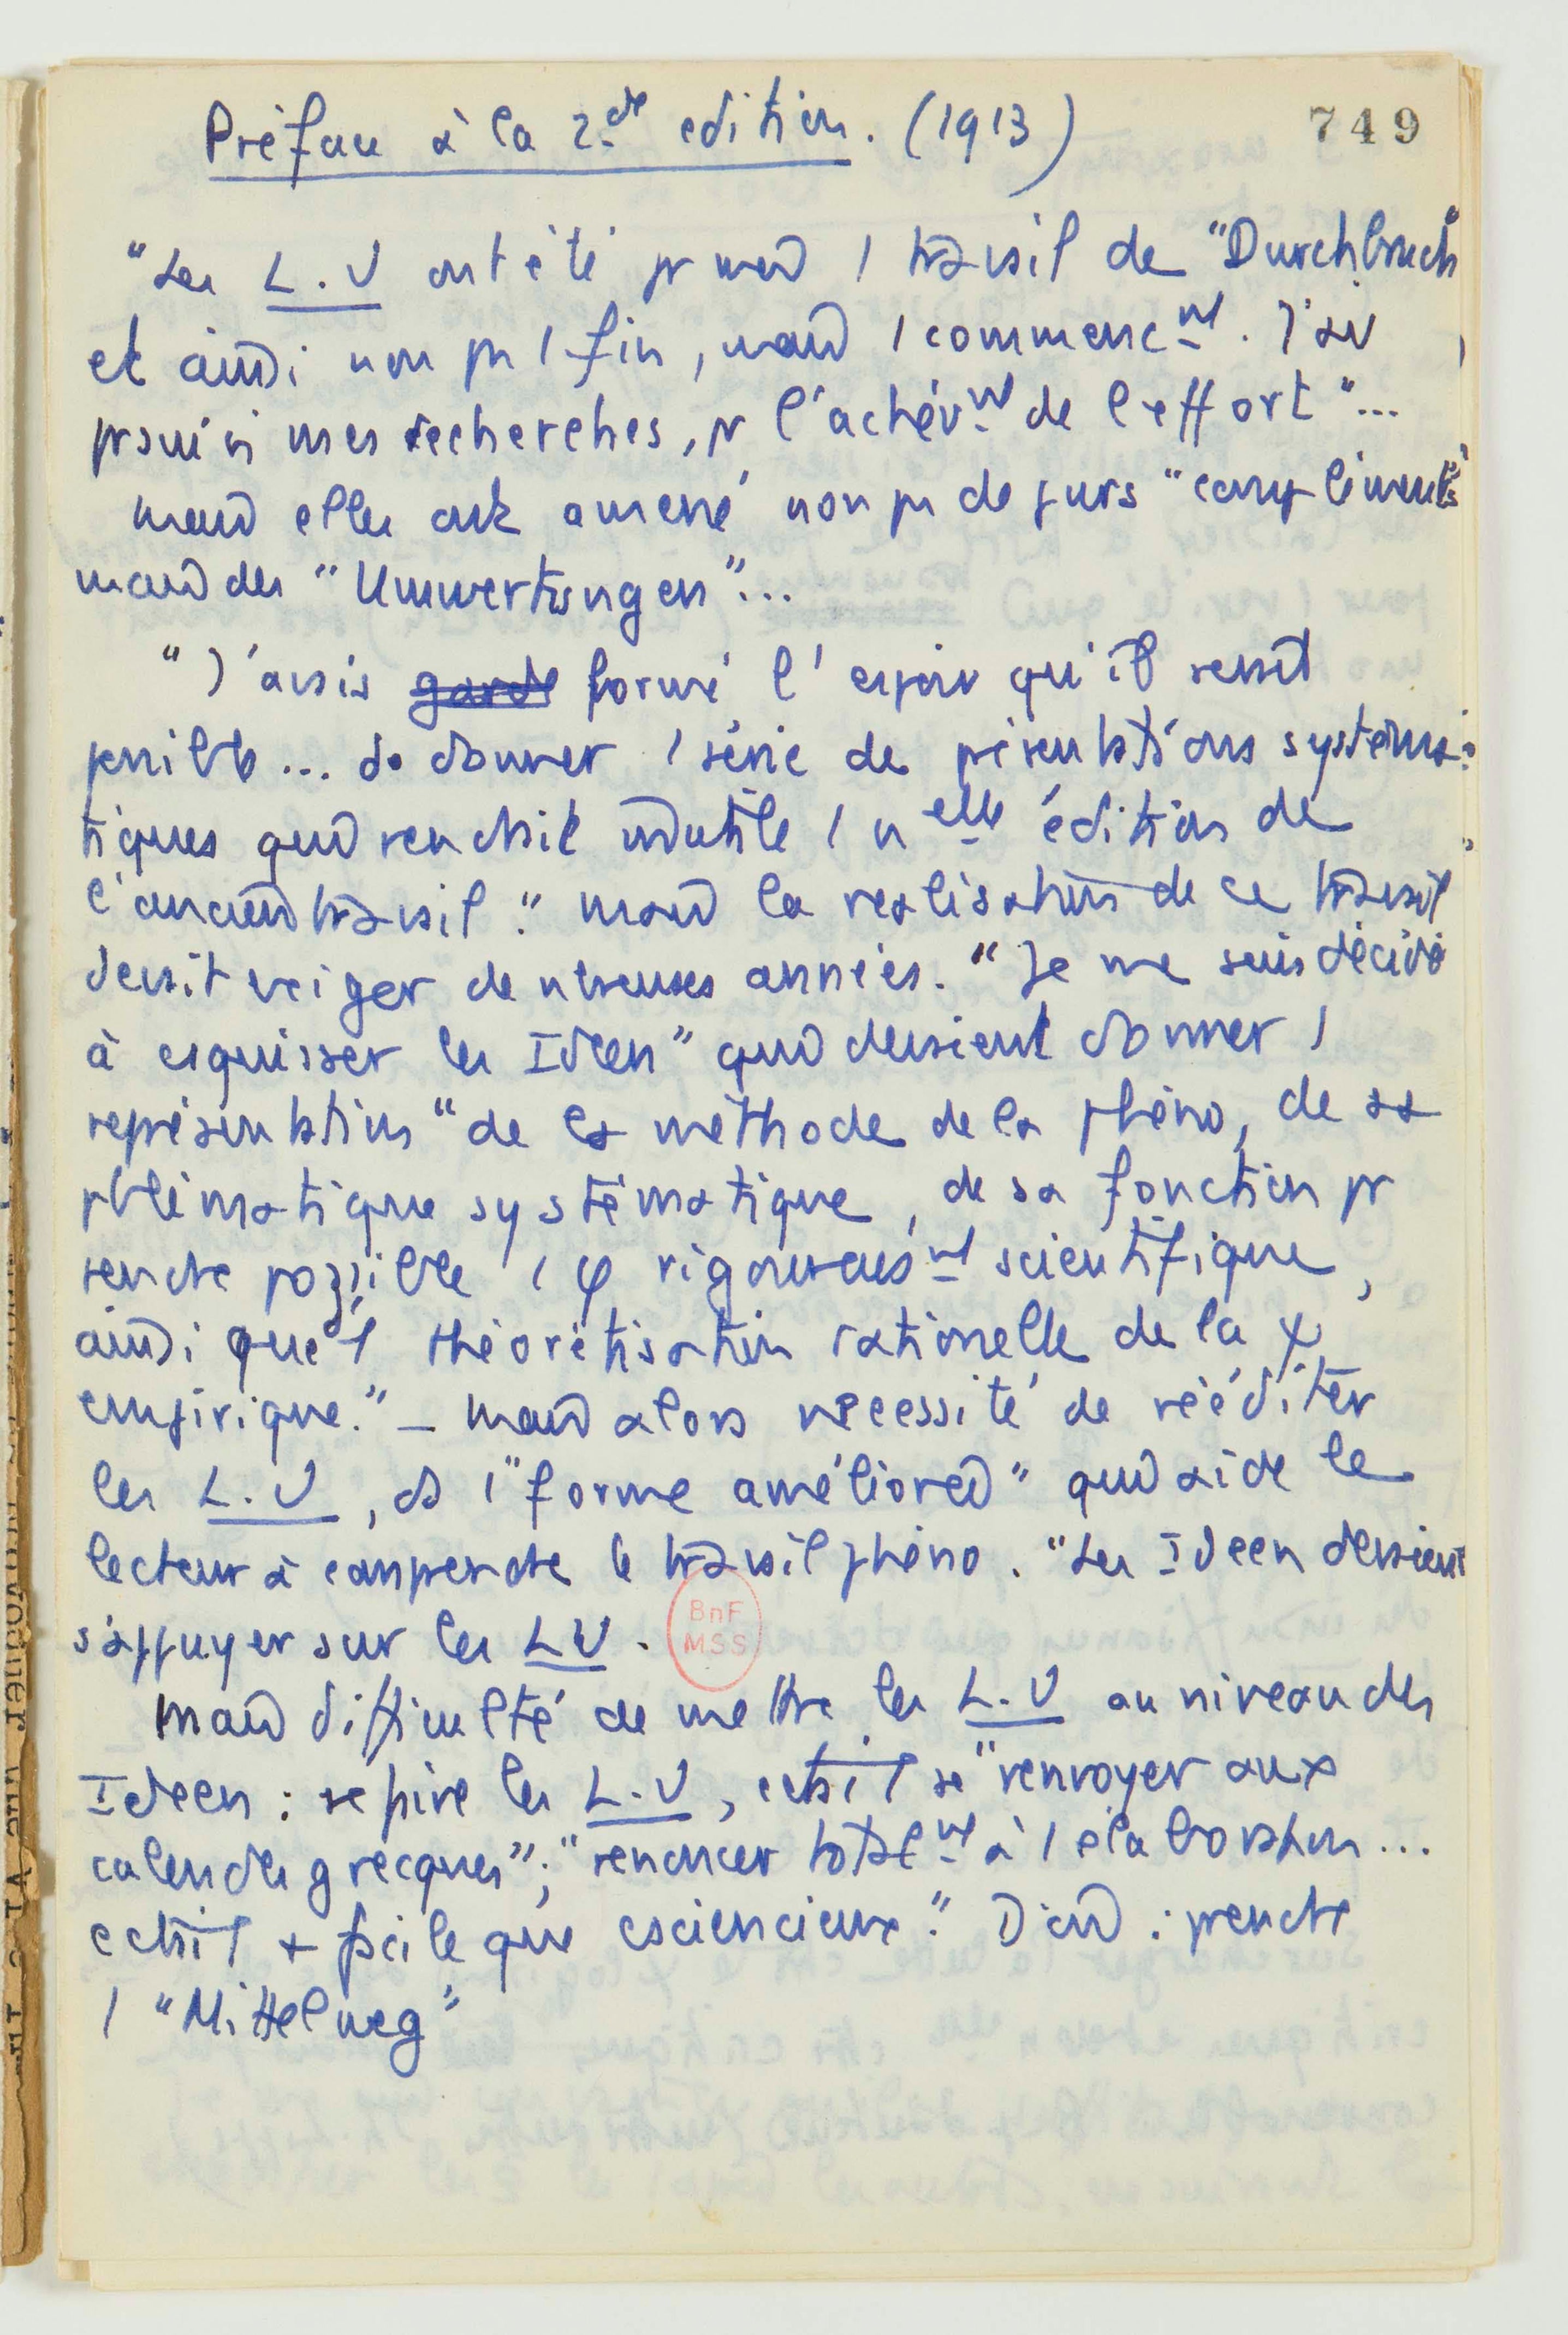 Préface à la 2de edition. (1913)
749
"Les L.U ont été pr moi 1 travail de "Durchbruch"
et ainsi non pas 1 fin, mais 1 commencnt. J'ai
prsuivi mes recherches, pr l'achèvnt de l'effort"...
mais elles ont amené non pas de purs "compléments"
mais des "Umwertungen"...
"J'avais formé l'espoir qu'il serait
possible... de donner 1 série de présentations systéma-
tiques qui rendrait inutile 1 nelle édition de
l'ancien travail." mais la realisation de ce travail
devait exiger de nbreuses années. "Je me suis décidé
à esquisser les Ideen" qui devaient donner 1
représentation "de la méthode de la phéno, de sa
pblématique systématique, de sa fonction pr
rendre possible 1 φ rigoureusnt scientifique,
ainsi que 1 théorétisation rationelle de la ψ
empirique." – mais alors nécessité de rééditer
les L.U, ds 1 "forme améliorée" qui aide le
lecteur à comprendre le travail phéno. "Les Ideen devaient
s'appuyer sur les LU.
BnF
MSS
Mais difficulté de mettre les L.U au niveau des
Ideen : refaire les L.U, c'était se "renvoyer aux
calendes grecques"; "renoncer totalnt à 1 élaboration...
c'était + facile que csciencieux." D'où : prendre
1 "Mittelweg"